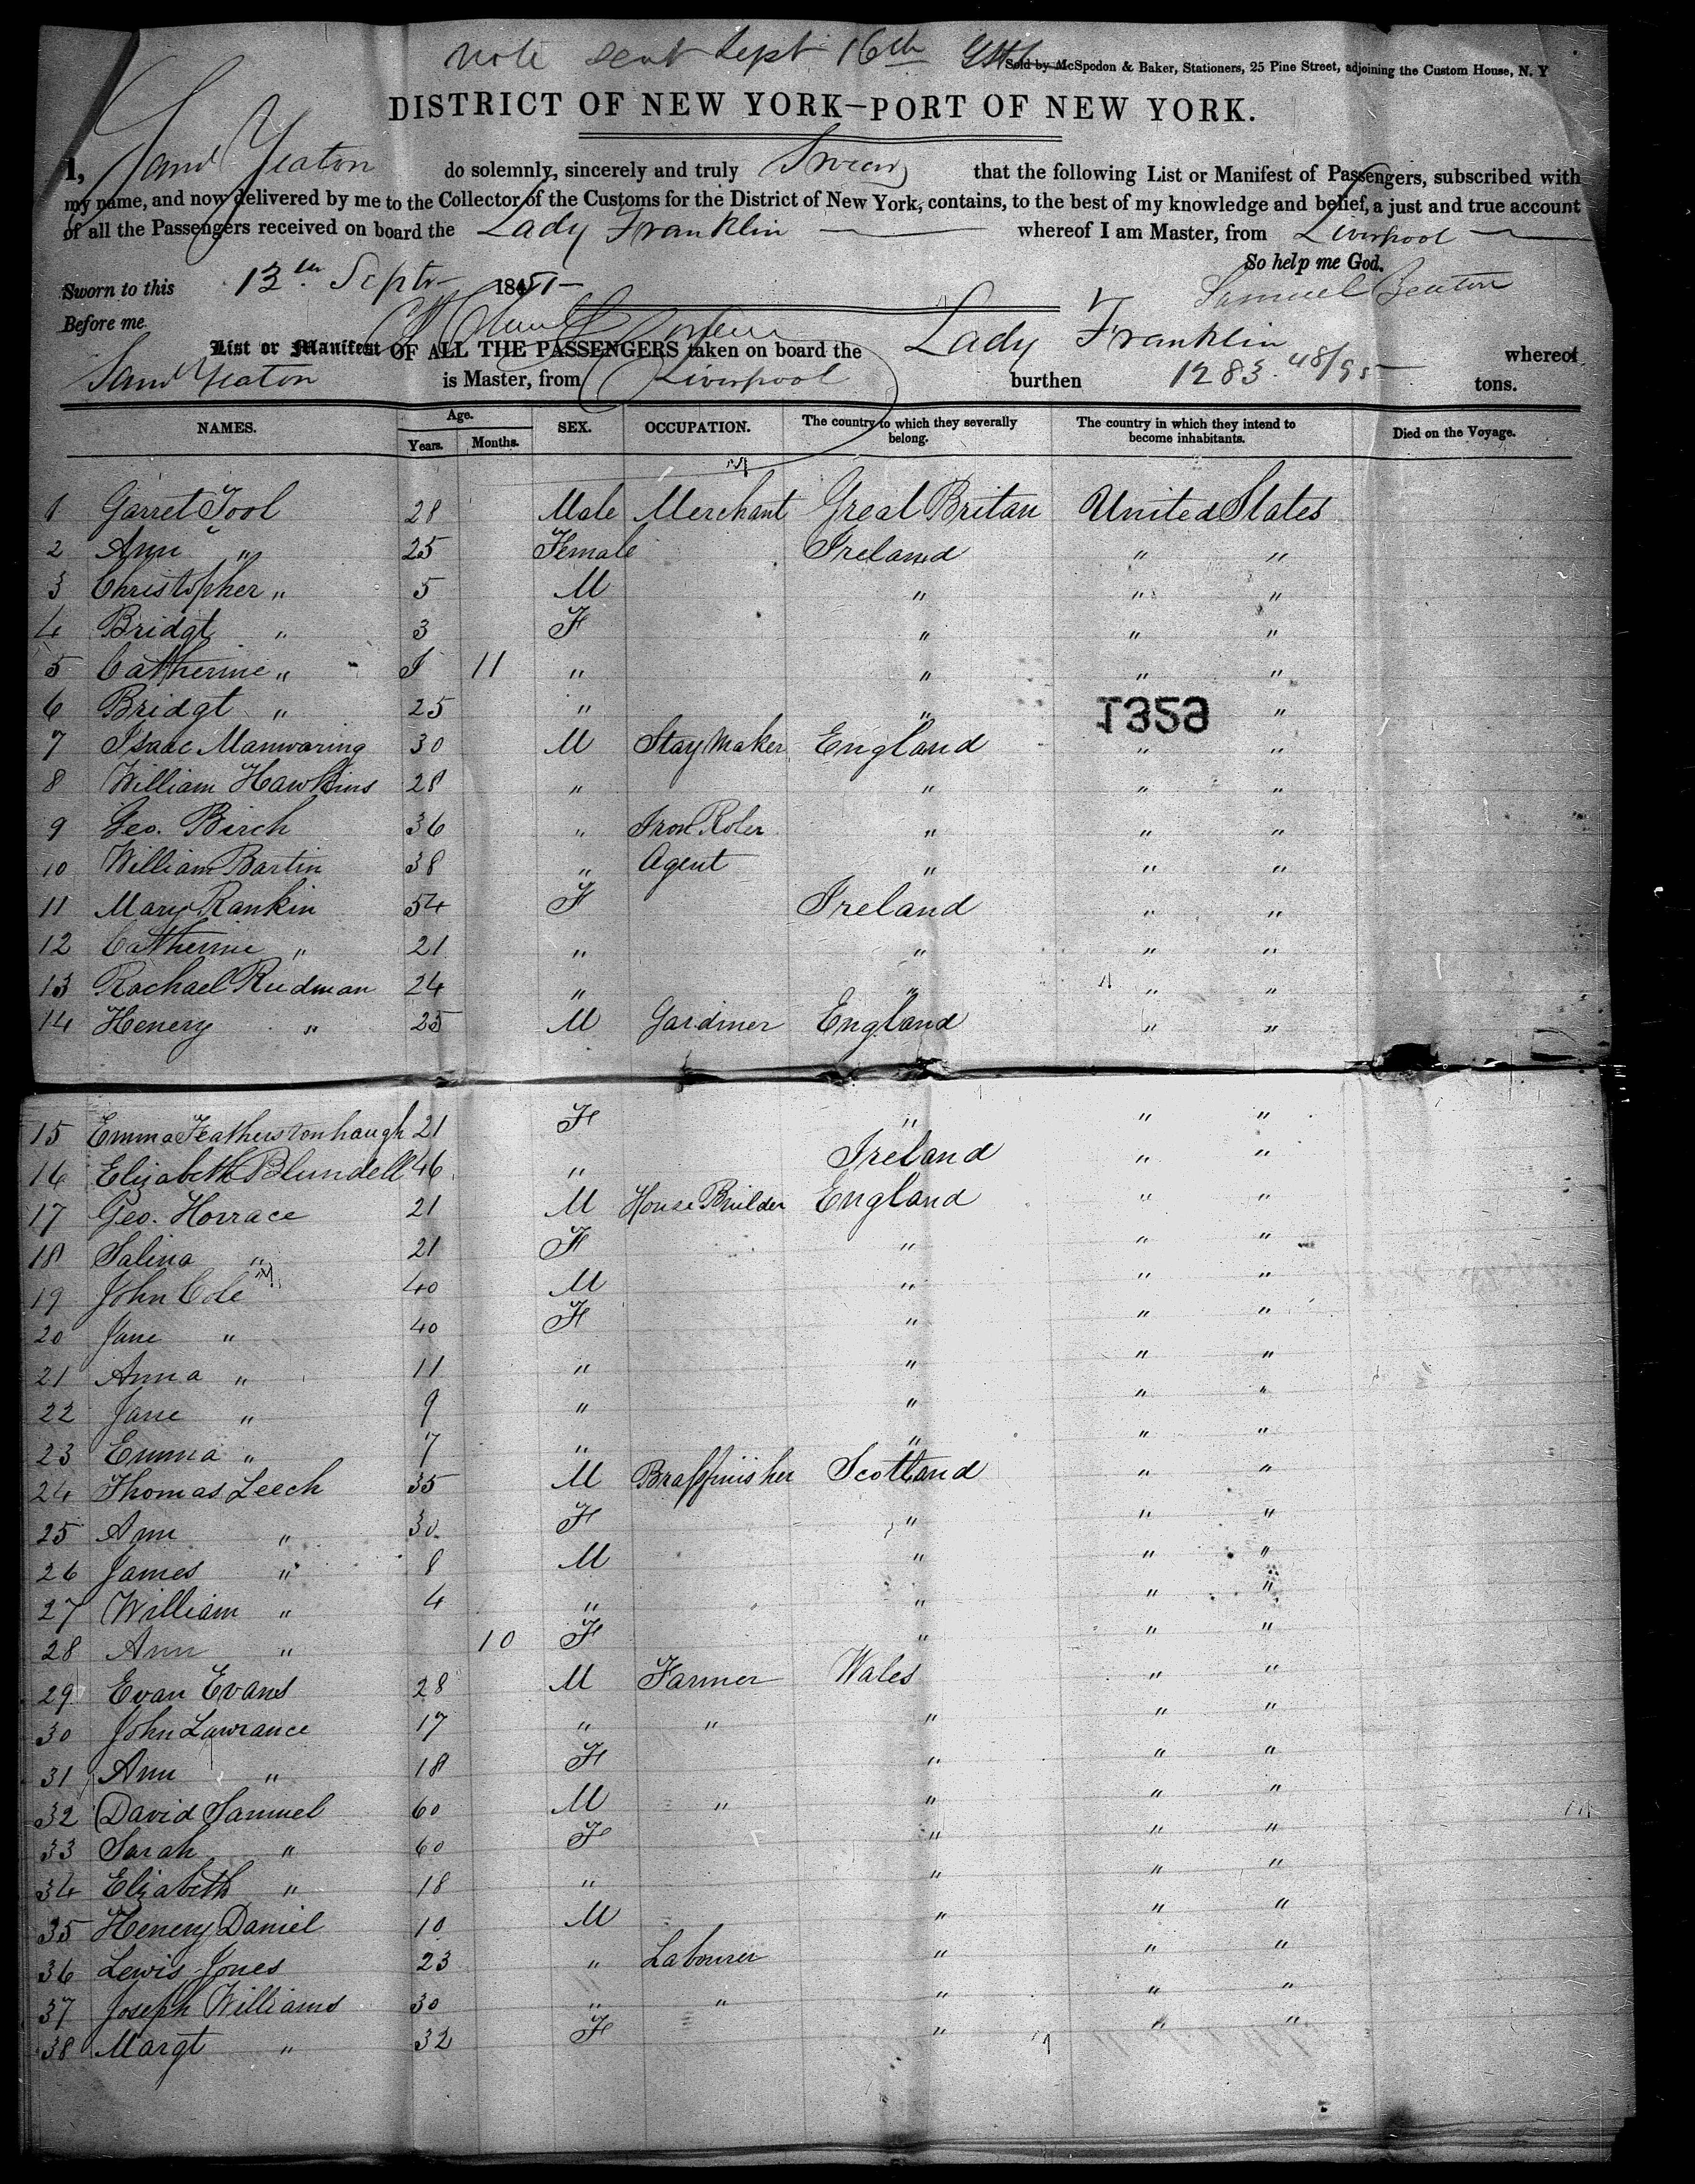 Note sent Sept 16th
Sold by McSpedon & Baker, Stationers, 25 Pine Street, adjoining the Custom House, N. Y
DISTRICT OF NEW YORK—PORT OF NEW YORK.
I, Saml Yeaton do solemnly, sincerely and truly Swear that the following List or Manifest of Passengers, subscribed with
my name, and now delivered by me to the Collector of the Customs for the District of New York, contains, to the best of my knowledge and belief, a just and true account
of all the Passengers received on board the Lady Franklin whereof I am Master, from Liverpool
So help me God.
Sworn to this 13th Septr 1851
Samuel Yeaton
Before me
List or Manifest OF ALL THE PASSENGERS taken on board the Lady Franklin whereof
Saml Yeaton is Master, from Liverpool burthen 1283 48/95 tons.
NAMES. Age. Years. Months. SEX. OCCUPATION. The country to which they severally belong. The country in which they intend to become inhabitants. Died on the Voyage.
1 Garret Tool 28 Male Merchant Great Britan United States
2 Ann " 25 Female Ireland " "
3 Christopher " 5 M " " "
4 Bridgt " 3 F " " "
5 Catherine " 1 11 " " " "
6 Bridgt " 25 " " "
1359
7 Isaac Manwaring 30 M Stay Maker England " "
8 William Hawkins 28 " " " "
9 Geo. Birch 36 " Iron Roler " " "
10 William Bartin 38 " Agent " " "
11 Mary Rankin 54 F Ireland " "
12 Catherine " 21 " " " "
13 Rachael Rudman 24 " " " "
14 Henery " 25 M Gardiner England " "
15 Emma Featherstonhaugh 21 F " " "
16 Elizabeth Blundell 46 " Ireland " "
17 Geo. Horrace 21 M House Builder England " "
18 Salina " 21 F " " "
19 John Cole 40 M " " "
20 Jane " 40 F " " "
21 Anna " 11 " " " "
22 Jane " 9 " " " "
23 Emma " 7 " " " "
24 Thomas Leech 35 M Brassfinisher Scotland " "
25 Ann " 30 F " " "
26 James " 8 M " " "
27 William " 4 " " " "
28 Ann " 10 F " " "
29 Evan Evans 28 M Farmer Wales " "
30 John Lawrance 17 " " " " "
31 Ann " 18 F " " "
32 David Samuel 60 M " " " "
33 Sarah " 60 F " " "
34 Elizabeth " 18 " " " "
35 Henery Daniel 10 M " " "
36 Lewis Jones 23 " Labourer " " "
37 Joseph Williams 30 " " " " "
38 Margt " 32 F " " "